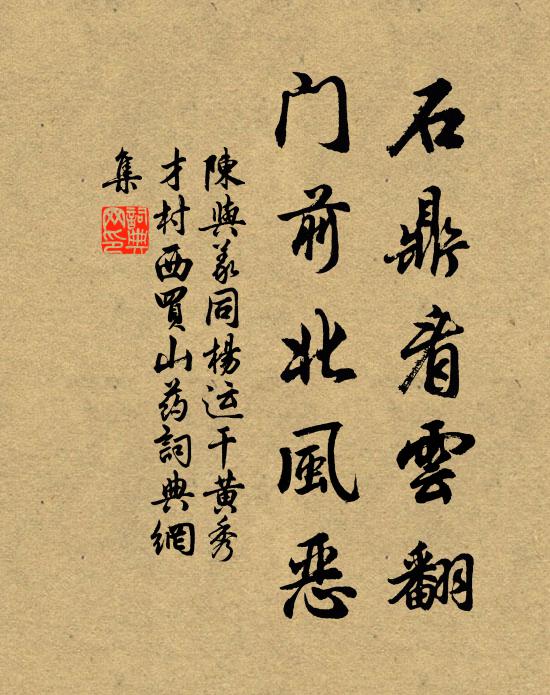 石鼎看雲翻
门前北風惡
陳與義同楊运干黄秀
才村西買山药詞典網
集
詞典网印